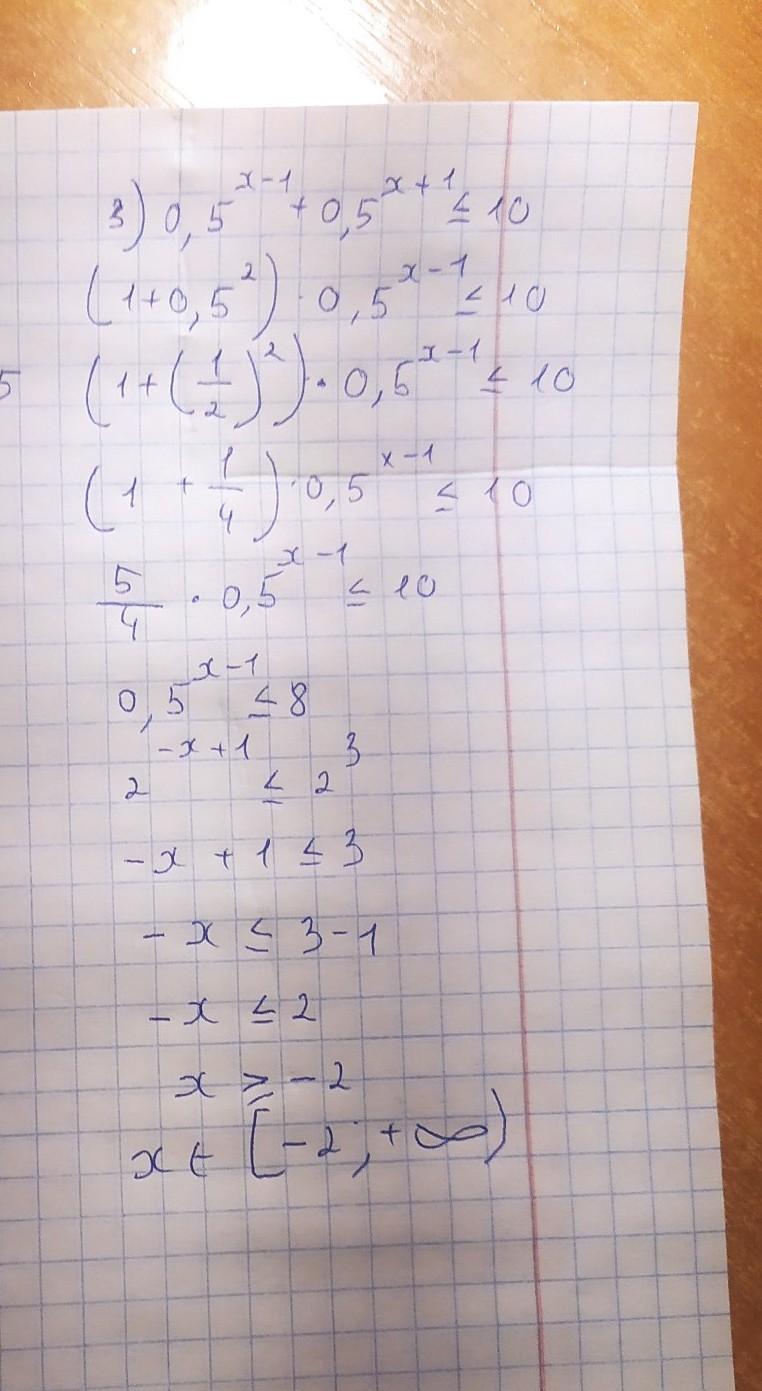 3) 0,5^(x-1) + 0,5^(x+1) ≤ 10
(1+0,5^2) · 0,5^(x-1) ≤ 10
5
(1+(1/2)^2) · 0,5^(x-1) ≤ 10
(1 + 1/4) · 0,5^(x-1) ≤ 10
5/4 · 0,5^(x-1) ≤ 10
0,5^(x-1) ≤ 8
2^(-x+1) ≤ 2^3
-x + 1 ≤ 3
-x ≤ 3-1
-x ≤ 2
x ≥ -2
x ∈ [-2; +∞)